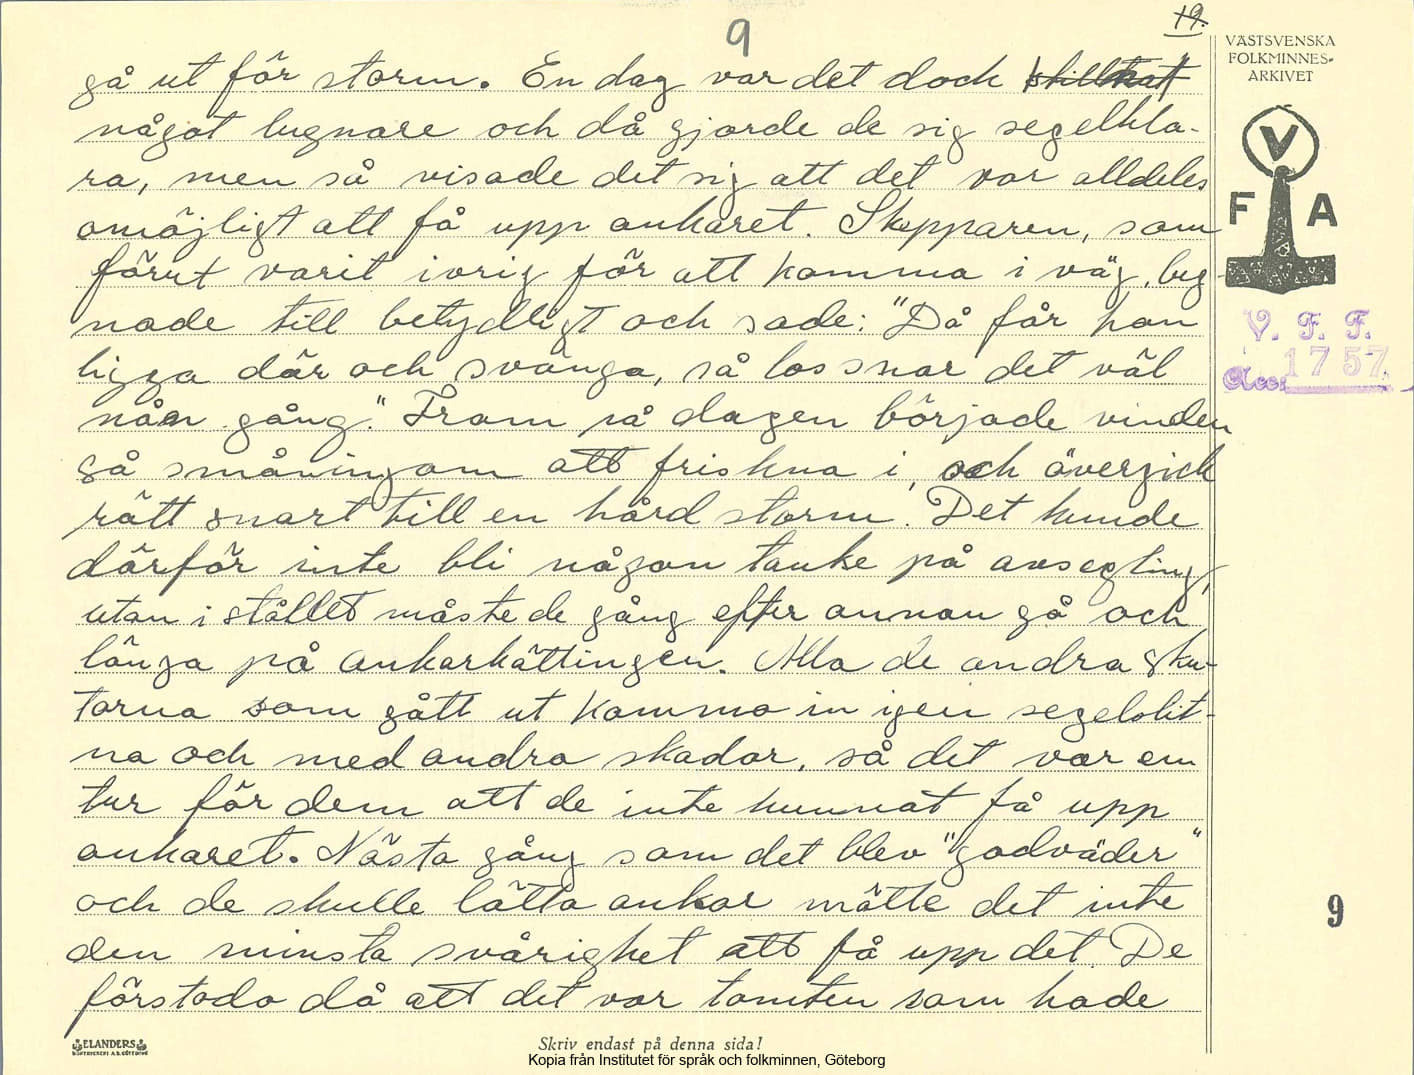 9
19.
gå ut för storm. En dag var det dock
något lugnare och då gjorde de sig segelkla-
ra, men så visade det sig att det var alldeles
omöjligt att få upp ankaret. Skepparen, som
förut varit ivrig för att komma i väg, lug-
nade till betydligt och sade: "Då får han
ligga där och svänga, så lossnar det väl
nån gång." Fram på dagen började vinden
så småningom att friskna i, och övergick
rätt snart till en hård storm. Det kunde
därför inte bli någon tanke på avsegling,
utan i stället måste de gång efter annan gå och
länga på ankarkättingen. Alla de andra sku-
torna som gått ut kommo in igen segelslit-
na och med andra skador, så det var en
tur för dem att de inte kunnat få upp
ankaret. Nästa gång som det blev "godväder"
och de skulle lätta ankar mötte det inte
den minsta svårighet att få upp det. De
förstodo då att det var tomten som hade
VÄSTSVENSKA
FOLKMINNES-
ARKIVET
V
F A
V. F. F.
Acc. 1757
9
ELANDERS
Skriv endast på denna sida!
Kopia från Institutet för språk och folkminnen, Göteborg